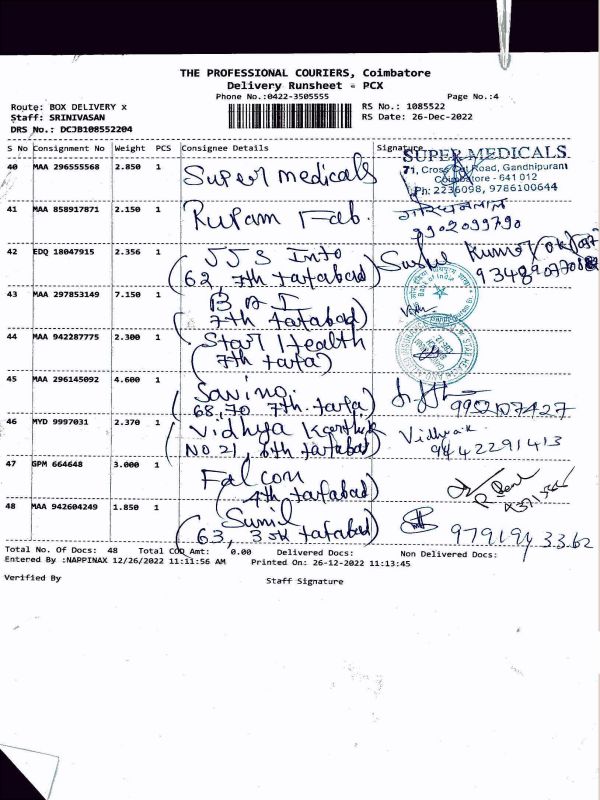 THE PROFESSIONAL COURIERS, Coimbatore
Delivery Runsheet - PCX
Phone No.:0422-3505555
Page No.:4
Route: BOX DELIVERY x
RS No.: 1085522
Staff: SRINIVASAN
RS Date: 26-Dec-2022
DRS No.: DCJB108552204
S No Consignment No Weight PCS Consignee Details Signature
40 MAA 296555568 2.850 1 Super medicals
SUPER MEDICALS
71, Cross Cut Road, Gandhipuram
Coimbatore - 641 012
Ph: 2236098, 9786100644
41 MAA 858917871 2.150 1 Rupam Fab.
9902099790
42 EDQ 18047915 2.356 1 JJS Info
(62, 7th tatabad)
Bank of India
43 MAA 297853149 7.150 1 BOI
(7th tatabad)
44 MAA 942287775 2.300 1 Star Health
(7th tata)
45 MAA 296145092 4.600 1 Saving.
(68,70 7th tata)
9952107427
46 MYD 9997031 2.370 1 Vidhya Karthik
(No 21, 6th tatabad)
Vidhya.k
9442291413
47 GPM 664648 3.000 1 Falcon
(4th tatabad)
48 MAA 942604249 1.850 1 Sunil
(63, 3rd tatabad)
Total No. Of Docs: 48 Total COD Amt: 0.00 Delivered Docs: Non Delivered Docs:
Entered By :NAPPINAX 12/26/2022 11:11:56 AM Printed On: 26-12-2022 11:13:45
Verified By
Staff Signature